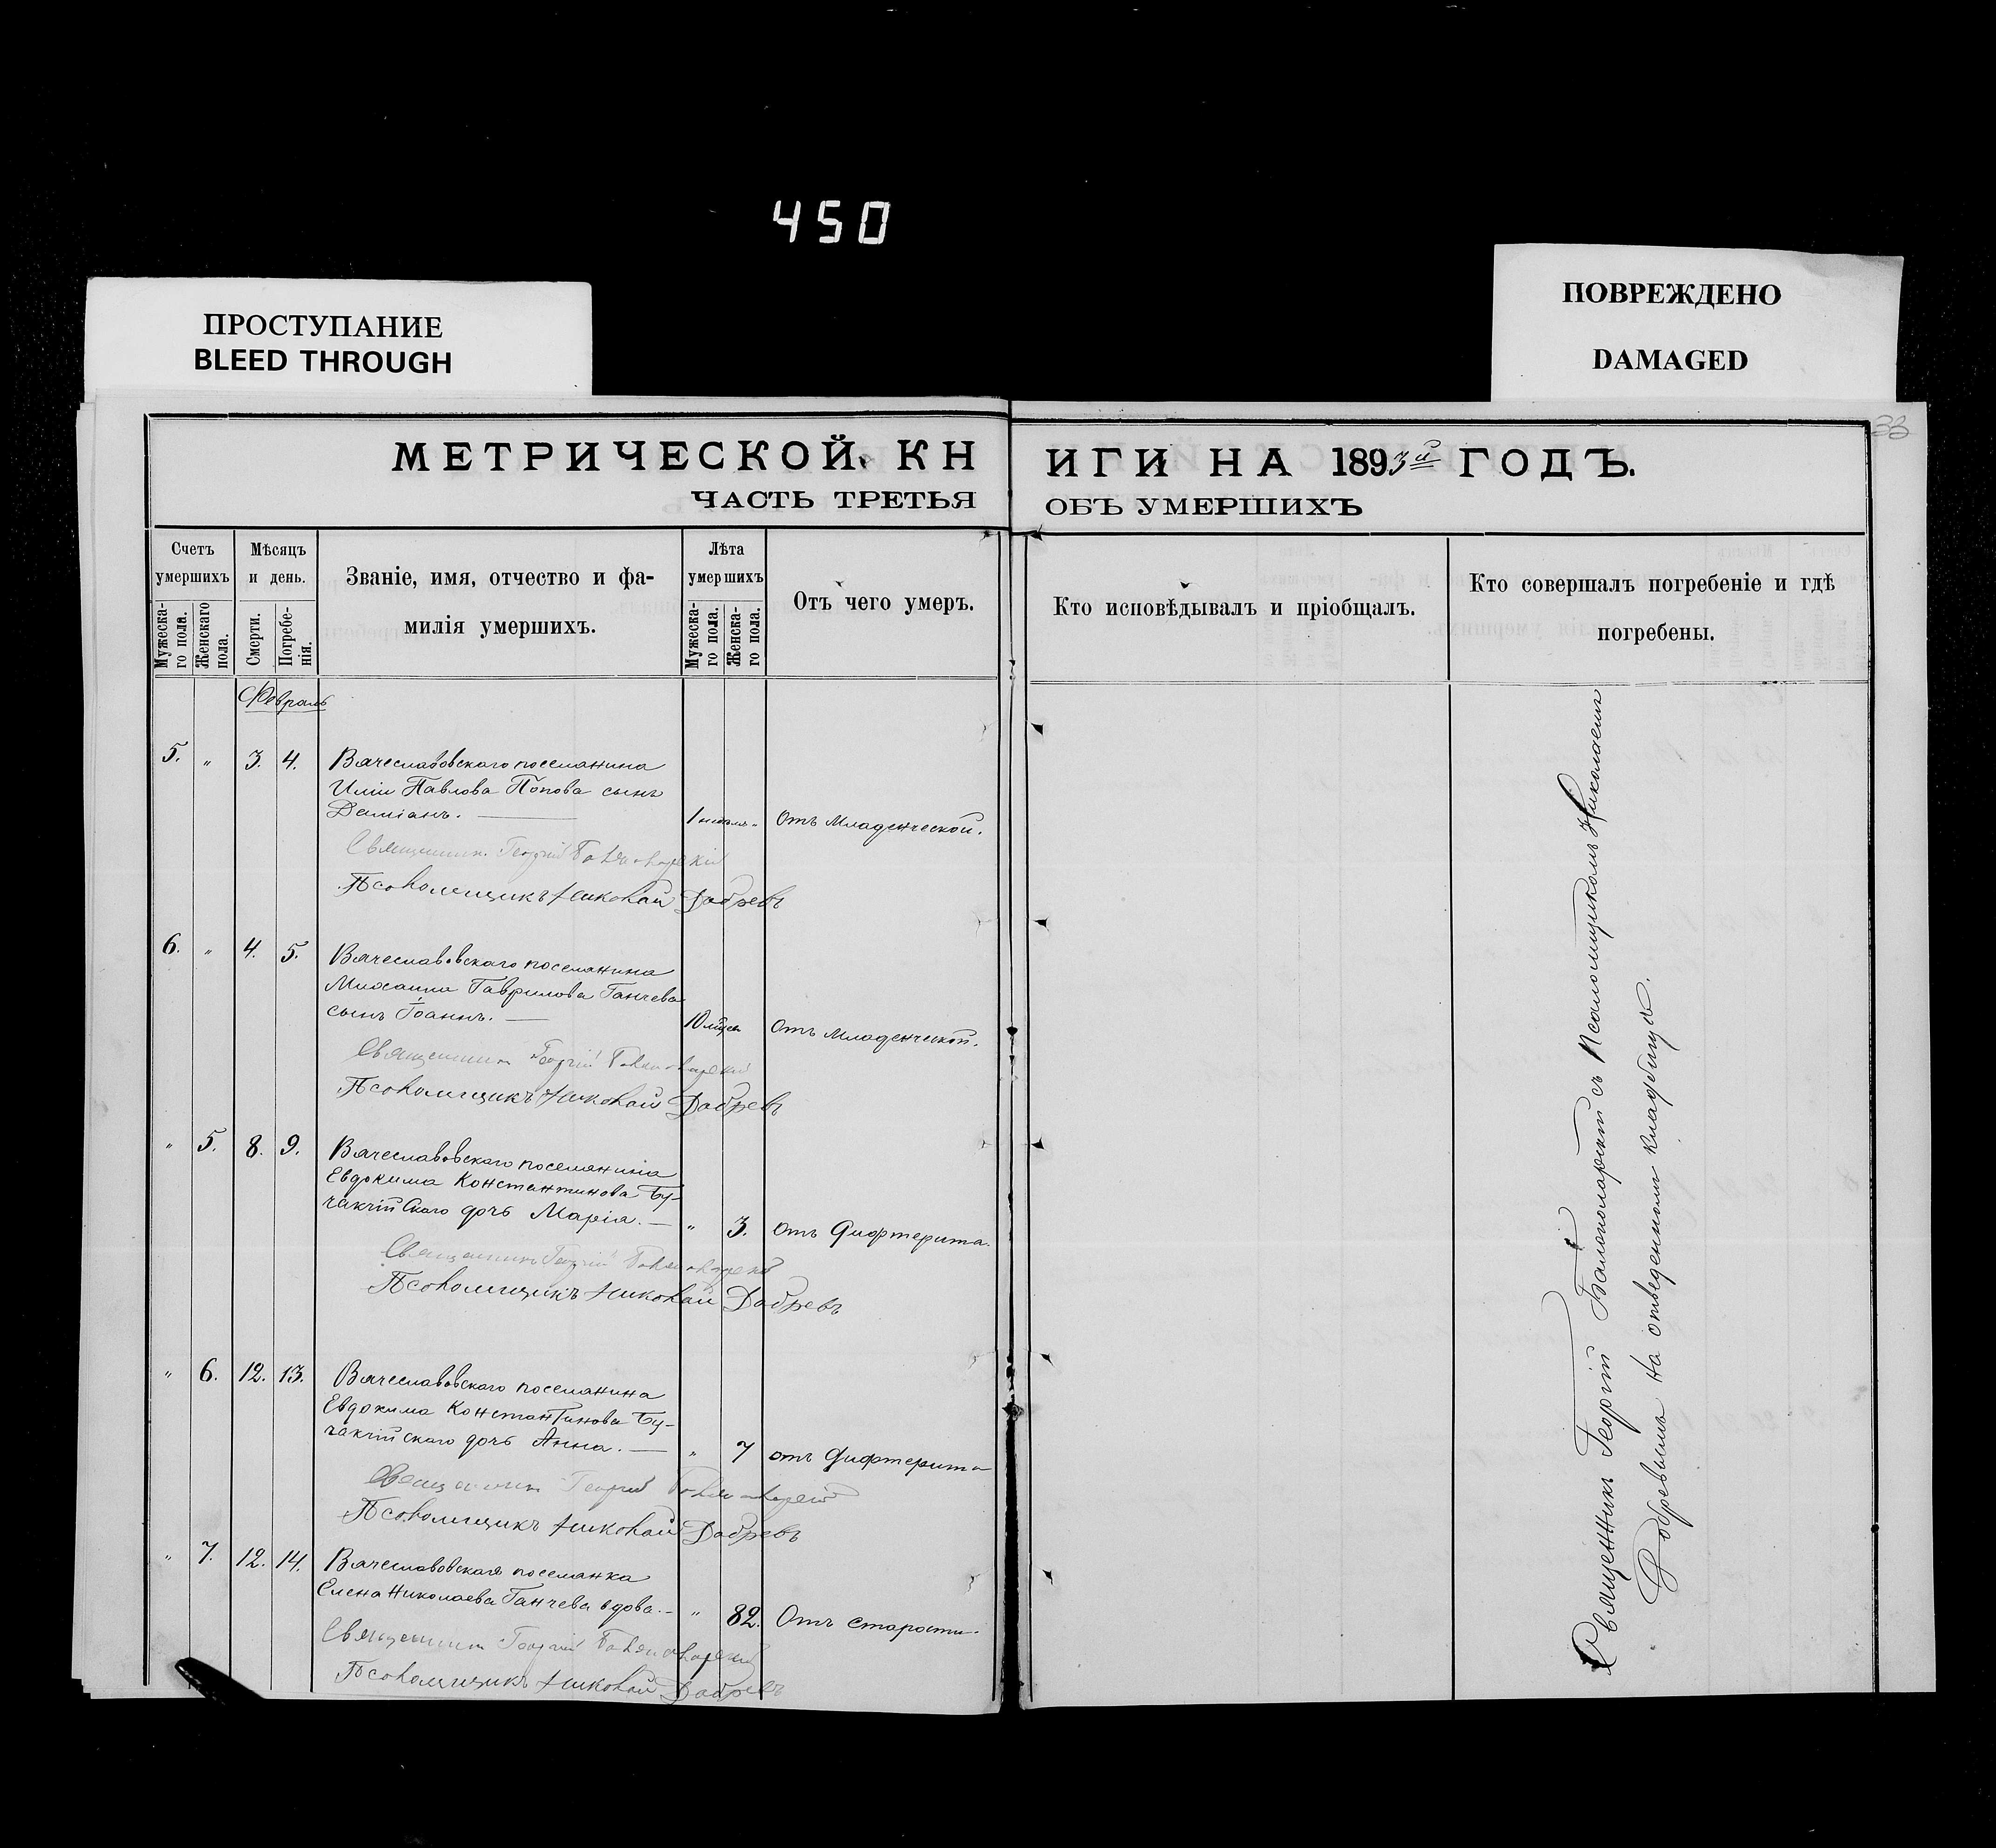 450
ПРОСТУПАНИЕ
BLEED THROUGH
ПОВРЕЖДЕНО
DAMAGED
33
МЕТРИЧЕСКОЙ КНИГИ НА 1893й ГОДЪ.
ЧАСТЬ ТРЕТЬЯ ОБЪ УМЕРШИХЪ
Счетъ умершихъ
Мужеска-го пола.
Женскаго пола.
Мѣсяцъ и день.
Смерти.
Погребе-нія.
Званіе, имя, отчество и фа-
милія умершихъ.
Лѣта умершихъ
Мужеска-го пола.
Женска-го пола.
Отъ чего умеръ.
Кто исповѣдывалъ и пріобщалъ.
Кто совершалъ погребеніе и гдѣ
погребены.
Февраль
5. „ 3. 4. Вячеславовскаго поселянина
Иліи Павлова Попова сынъ
Даміанъ. — „ Отъ Младенческой.
Священникъ Георгій
Псаломщикъ Николай Добревъ
6. „ 4. 5. Вячеславовскаго поселянина
Михаила Гаврилова Ганчева
сынъ Іоаннъ. — 10 Отъ Младенческой.
Священникъ Георгій
Псаломщикъ Николай Добревъ
„ 5. 8. 9. Вячеславовскаго поселянина
Евдокима Константинова Бу-
чакчійскаго дочь Марія. — „ 3. отъ Дифтерита.
Священникъ Георгій
Псаломщикъ Николай Добревъ
„ 6. 12. 13. Вячеславовскаго поселянина
Евдокима Константинова Бу-
чакчійскаго дочь Анна. — „ 7 отъ Дифтерита
Священникъ Георгій
Псаломщикъ Николай Добревъ
„ 7. 12. 14. Вячеславовская поселянка
Елена Николаева Ганчева вдова. — „ 82. Отъ старости.
Священникъ Георгій
Псаломщикъ Николай Добревъ
Священникъ Георгій съ Псаломщикомъ Николаемъ
Добревымъ на отведенномъ кладбищѣ.